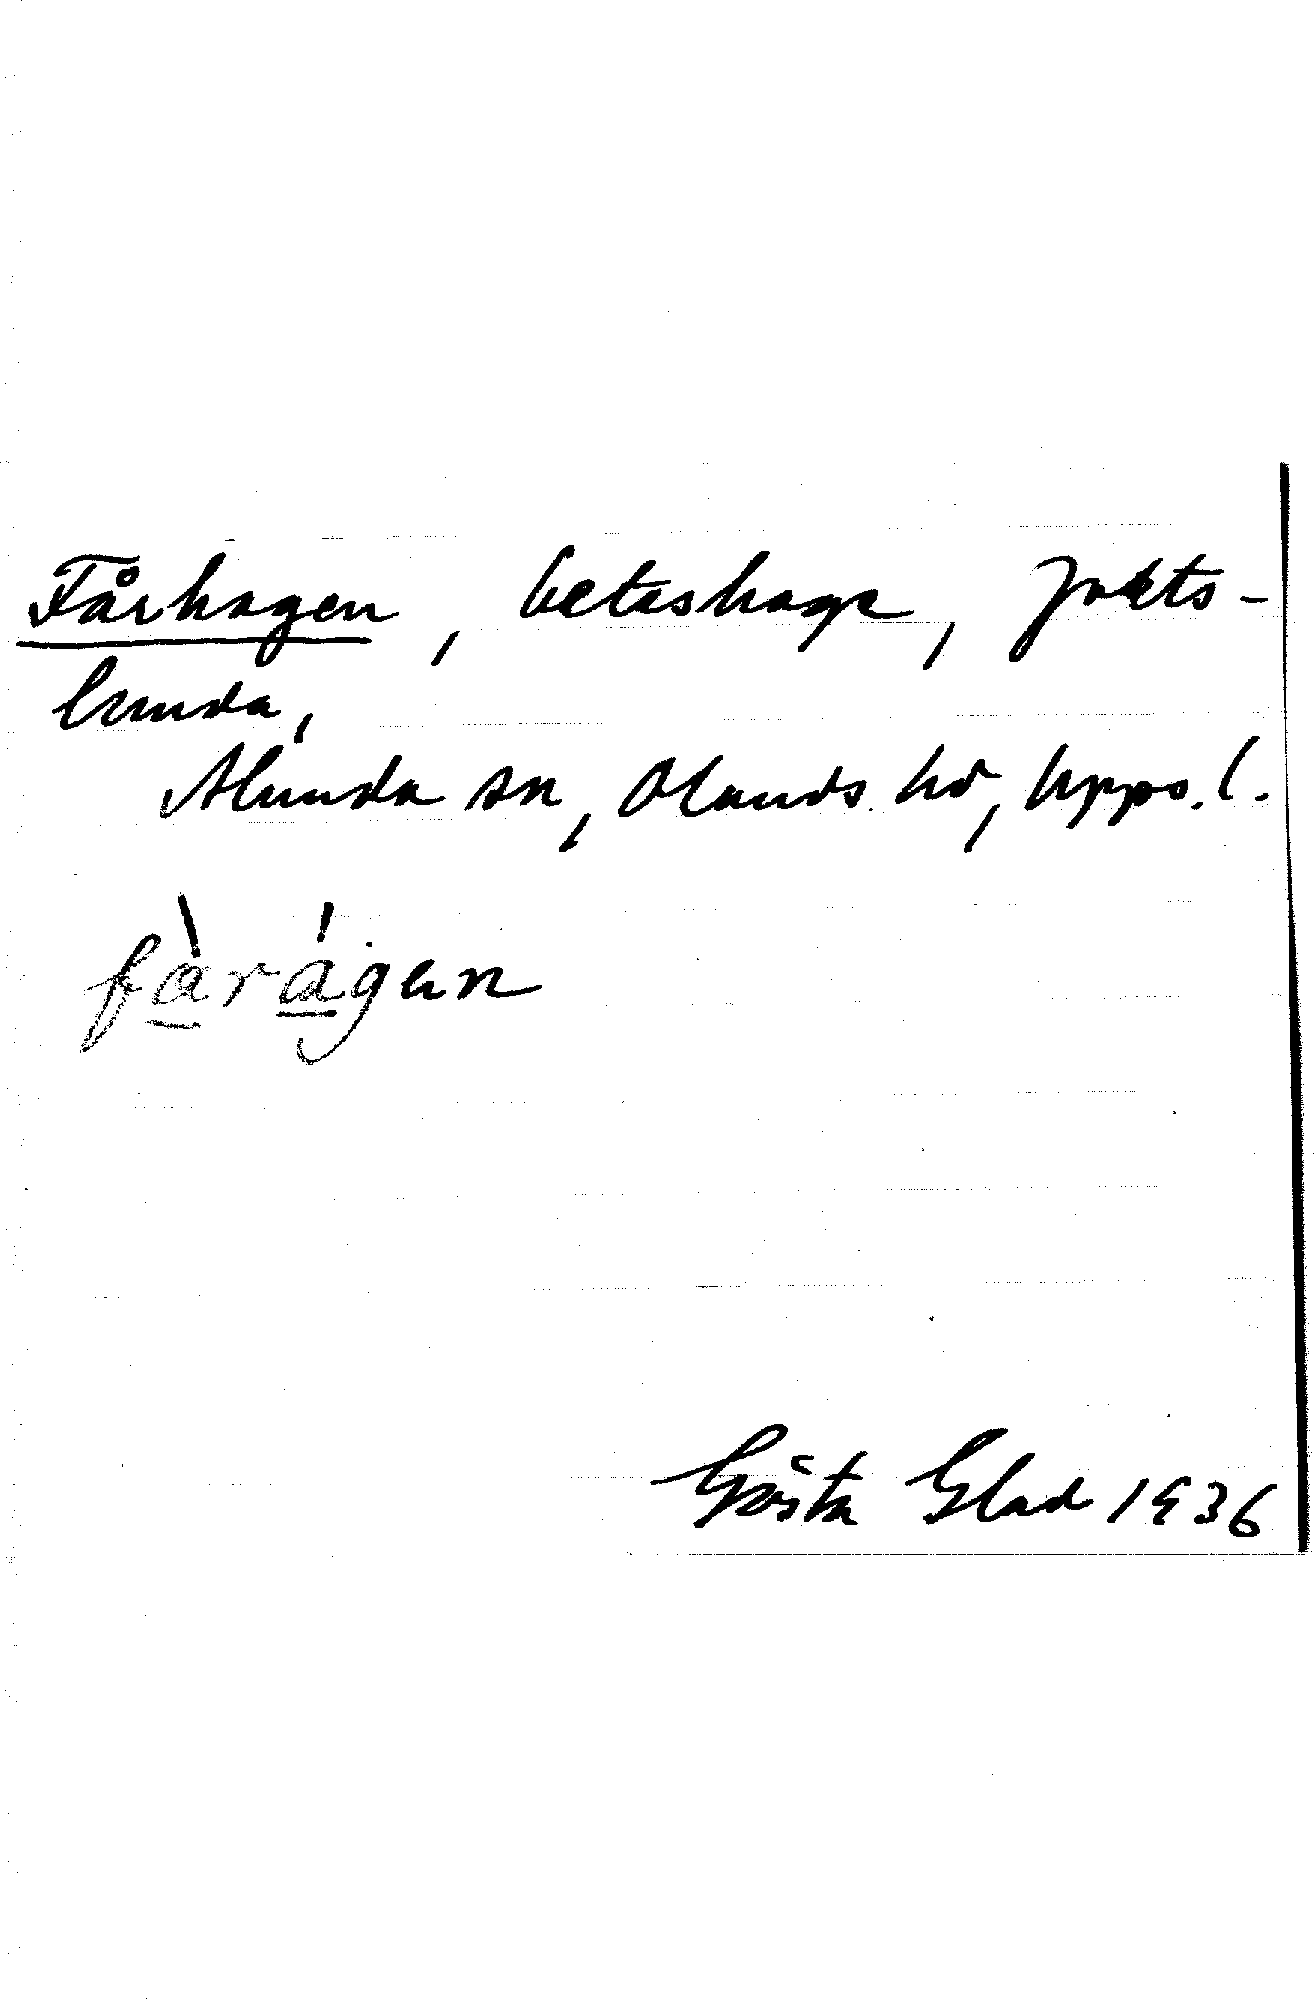 Fårhagen, betashage, Jakts-
lunda,
Alunda sn, Olands hd, Upps. l.
fàrágan
Gösta Glad 1936